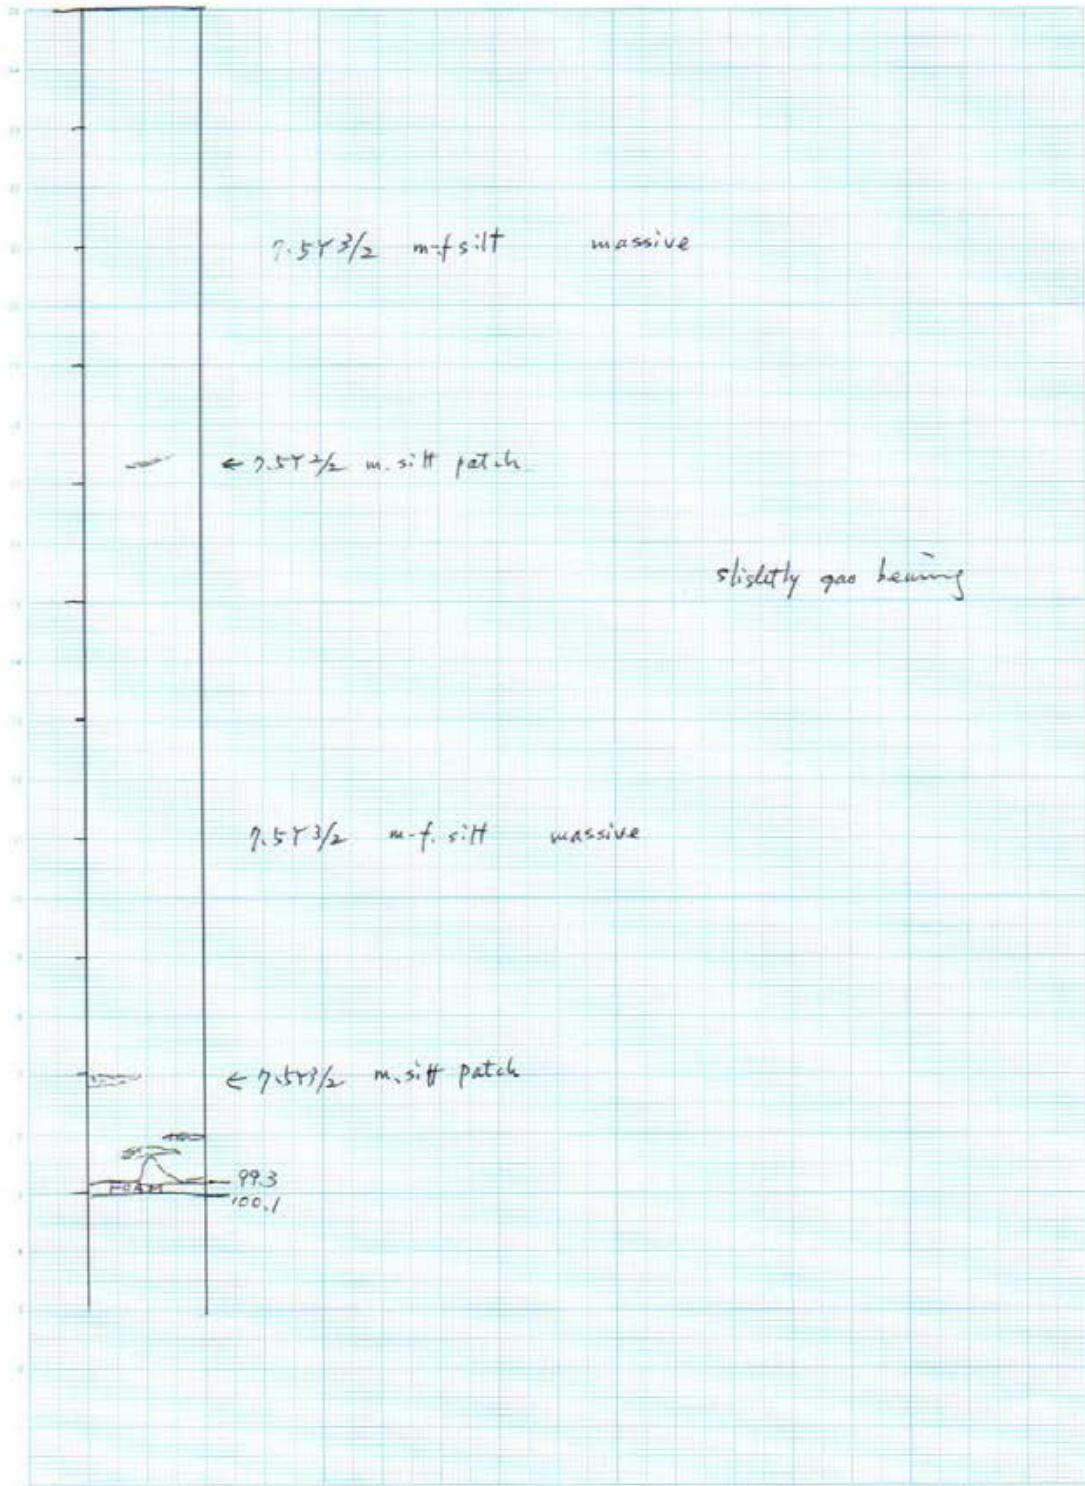 7.5Y 3/2 m-f silt massive
← 7.5Y 2/2 m. silt patch
slightly gas bearing
7.5Y 3/2 m-f. silt massive
← 7.5Y3/2 m. silt patch
99.3
FOAM
100.1